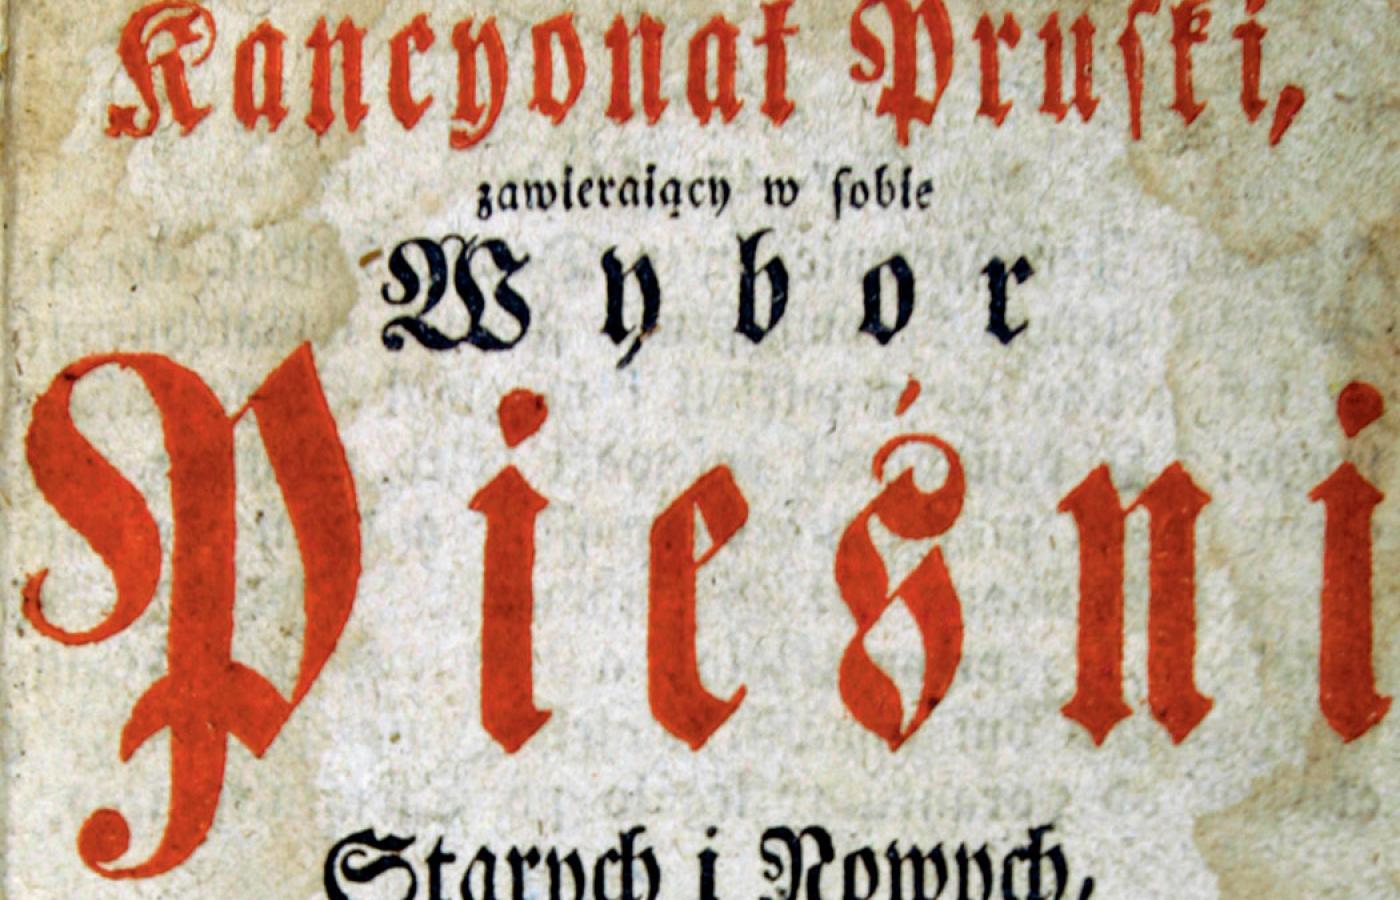 Kancyonał Pruſki,
zawieraiący w ſobie
Wybor
Pieśni
Starych i Nowych,